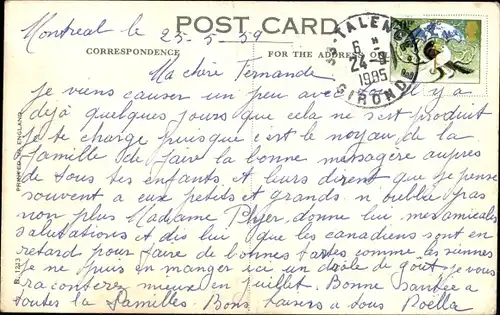 Montreal le 25-5-59
POST CARD
CORRESPONDENCE
FOR THE ADDRESS ONLY
33-TALENCE
6 H
24-9
1985
GIRONDE
Ma chère Fernande
Je viens causer un peu avec il y a
déjà quelques jours que cela ne s'est produit
Je te charge puisque c'est le noyau de la
famille de faire la bonne messagère auprès
de tous tes enfants et leurs dirent que je pense
souvent a eux petits et grands n'oublie pas
non plus Madame donne lui mes amicales
salutations et dis lui que les canadiens sont en
retard pour faire de bonnes tartes comme les siennes
Je ne puis en manger ici un drôle de goût, je vous
raconterez mieux en juillet. Bonne Santée a
toutes la Familles. Bons baisers a tous
PRINTED IN ENGLAND
B. 1213